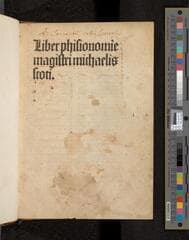 Liber phisionomie
magistri michaelis
scoti.